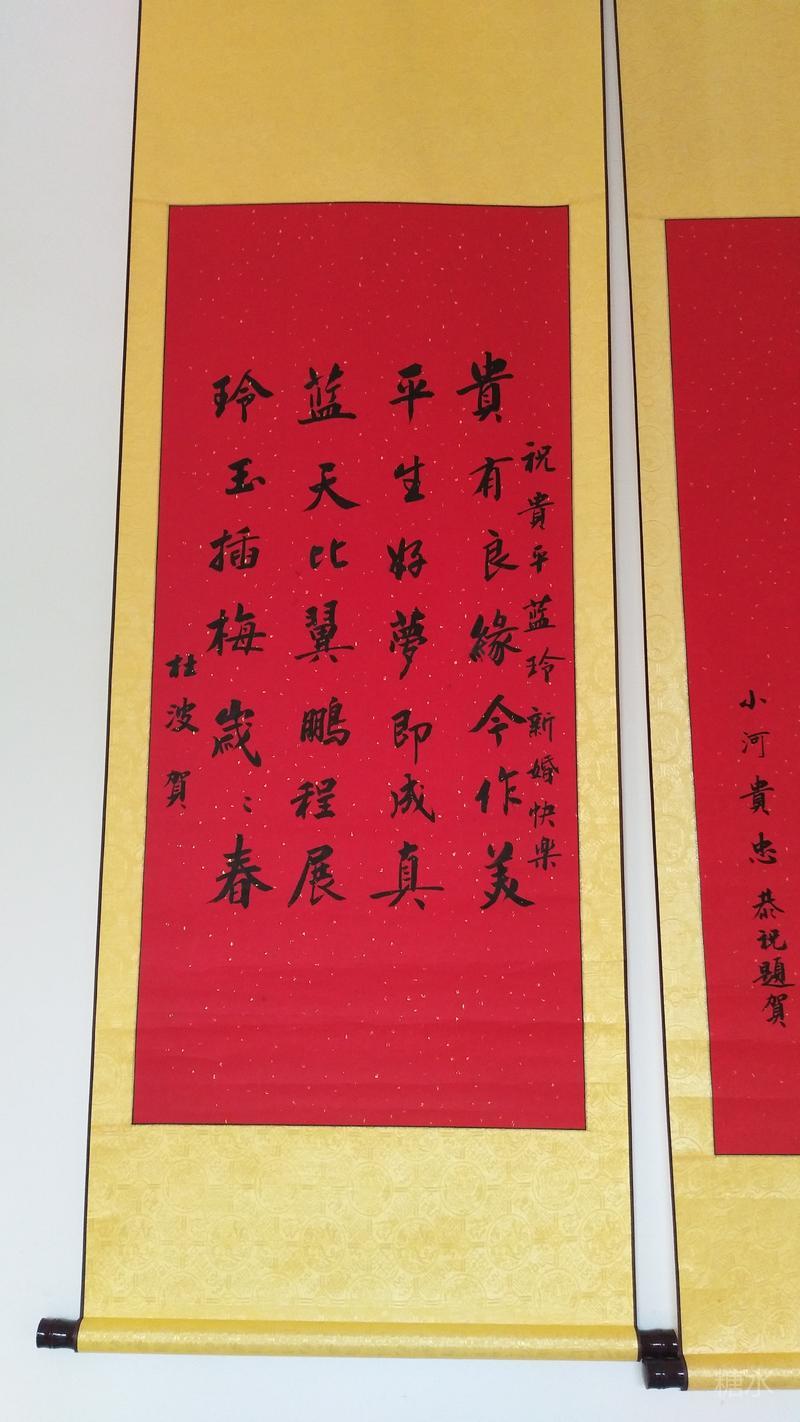 祝貴平蓝玲新婚快樂
貴有良緣今作美
平生好夢即成真
蓝天比翼鵬程展
玲玉插梅歲〻春
杜波賀
小河貴忠恭祝題賀
糖水